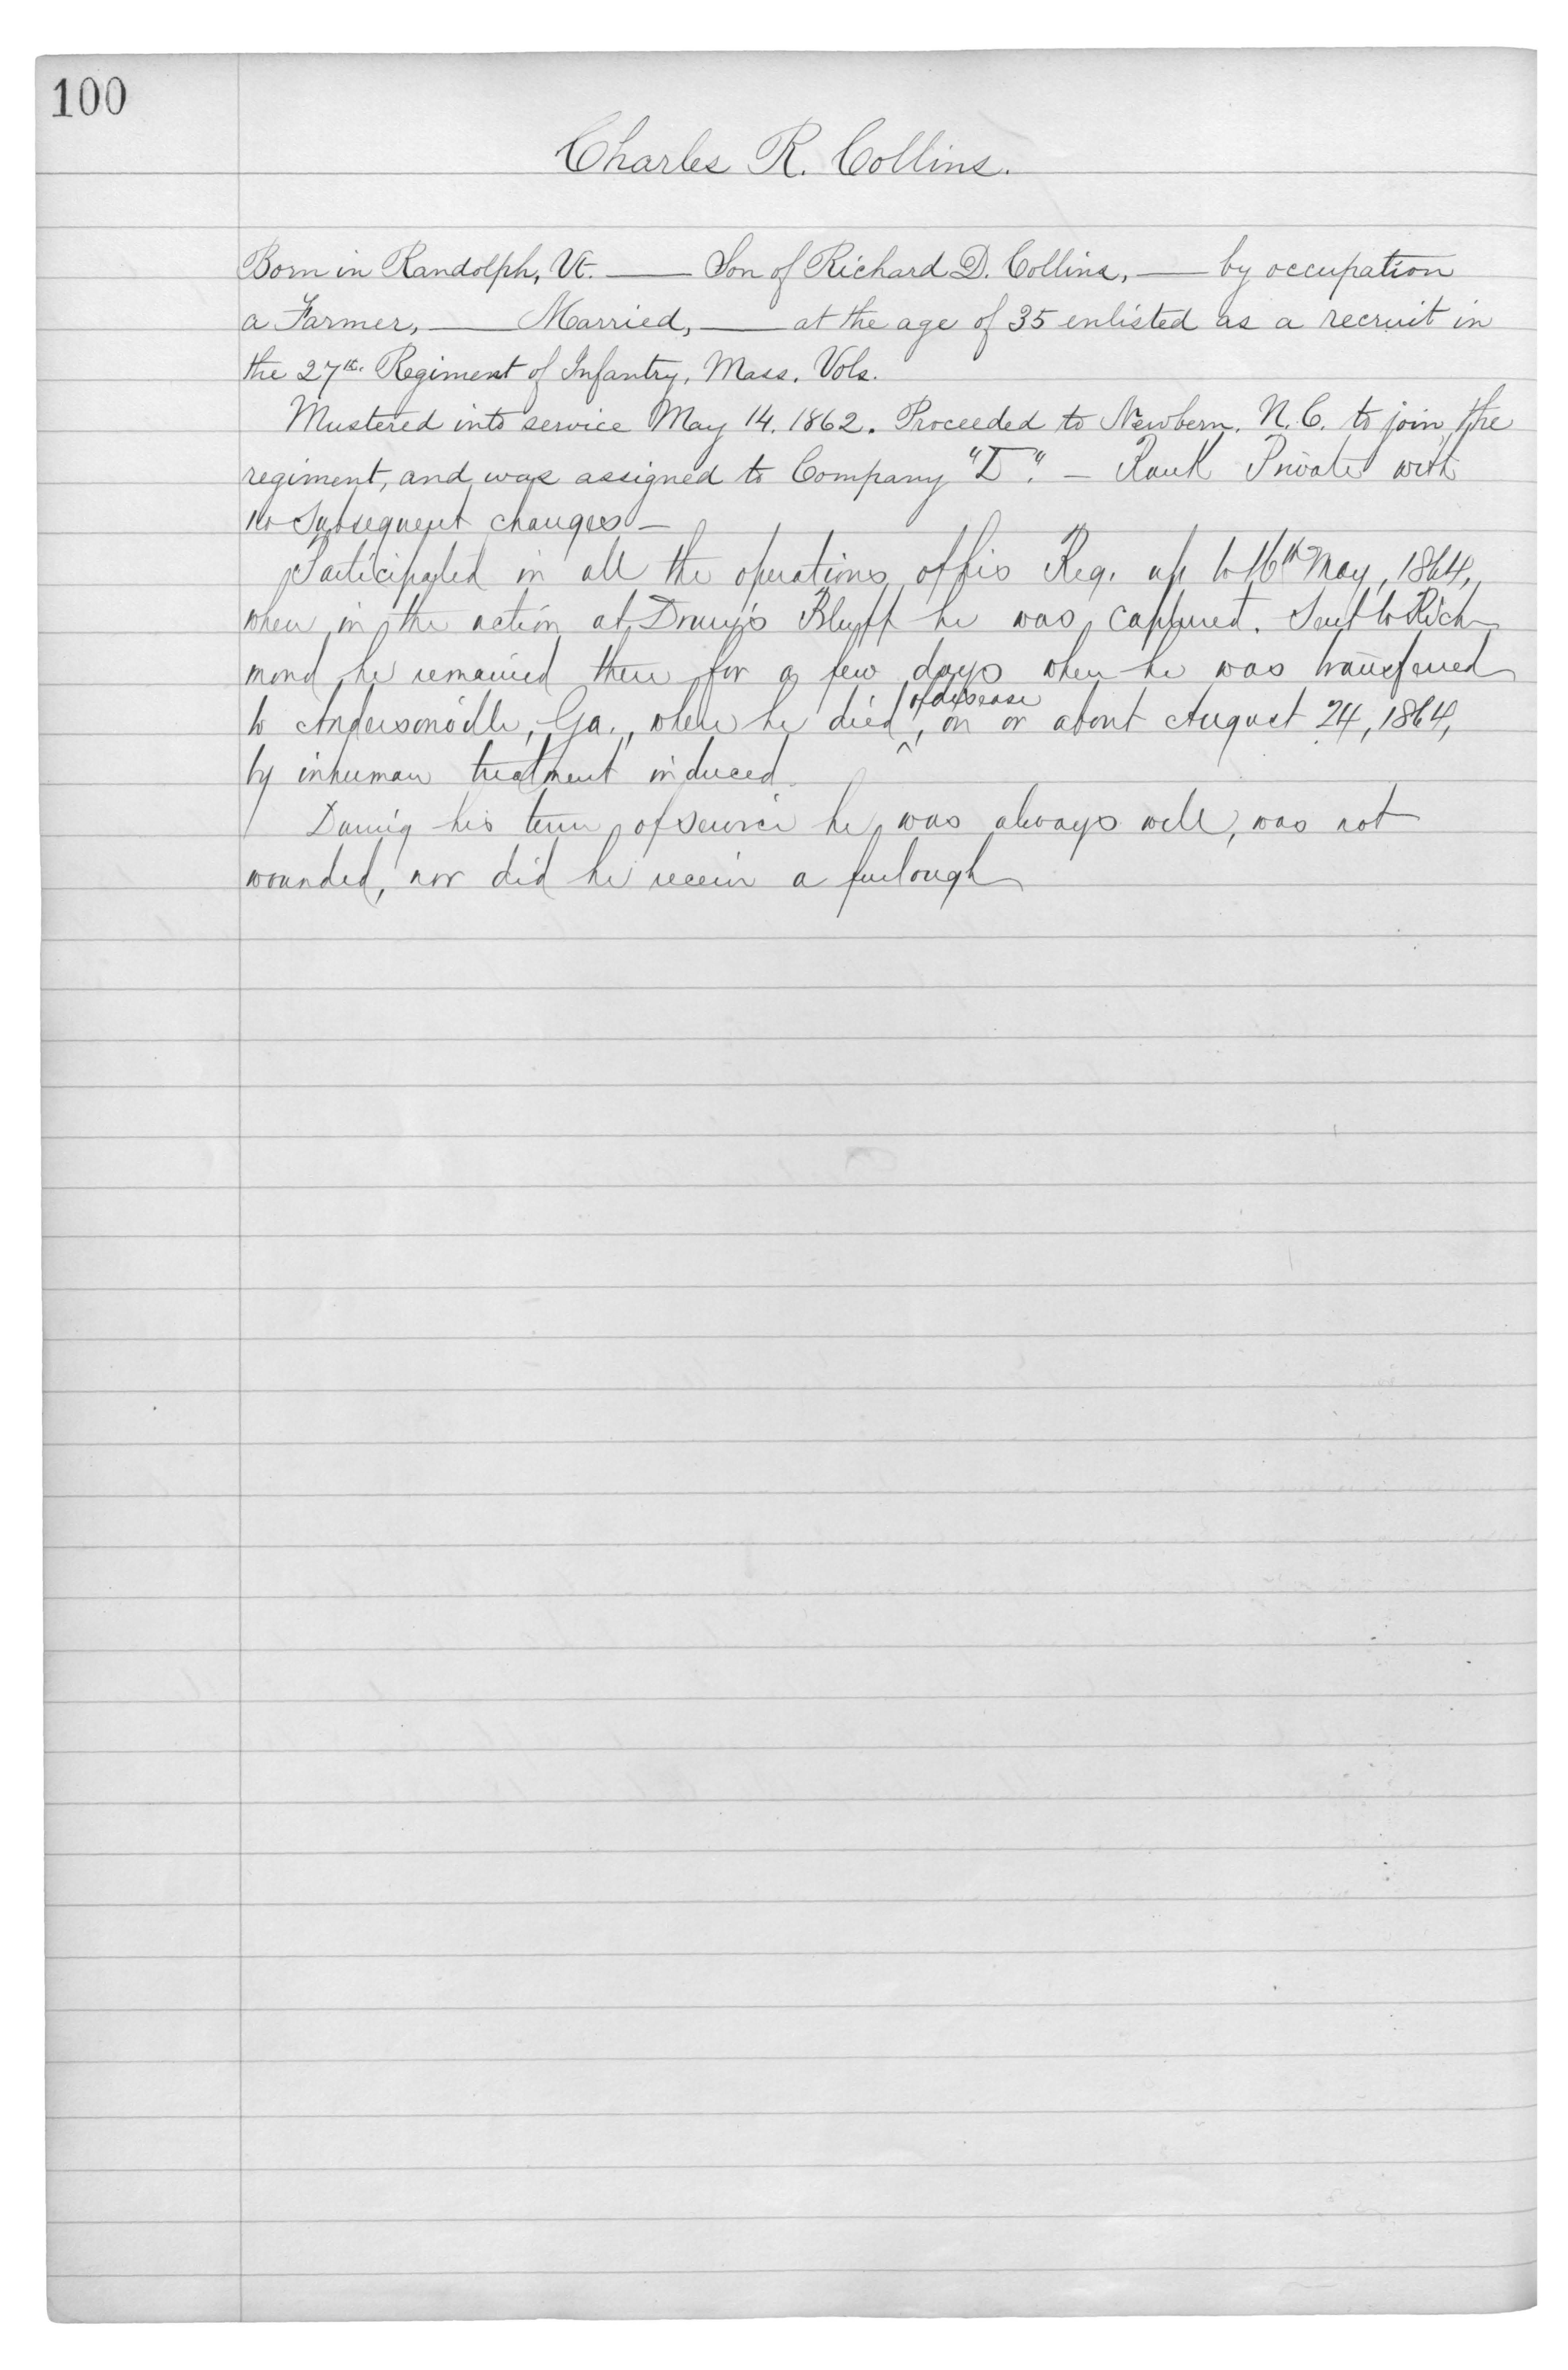 100
Charles R. Collins.
Born in Randolph, Vt. — Son of Richard D. Collins, — by occupation
a Farmer, — Married, — at the age of 35 enlisted as a recruit in
the 27th. Regiment of Infantry, Mass. Vols.
Mustered into service May 14. 1862. Proceeded to Newbern, N.C. to join the
regiment, and was assigned to Company "I". — Rank Private with
no subsequent changes —
Participated in all the operations of his Reg. up to 16th May, 1864,
when in the action at Drury's Bluff he was captured. Sent to Rich-
mond he remained there for a few days when he was transferred
of disease
to Andersonville, Ga., where he died ^, on or about August 24, 1864,
by inhuman treatment induced.
During his term of service he was always well, was not
wounded, nor did he receive a furlough